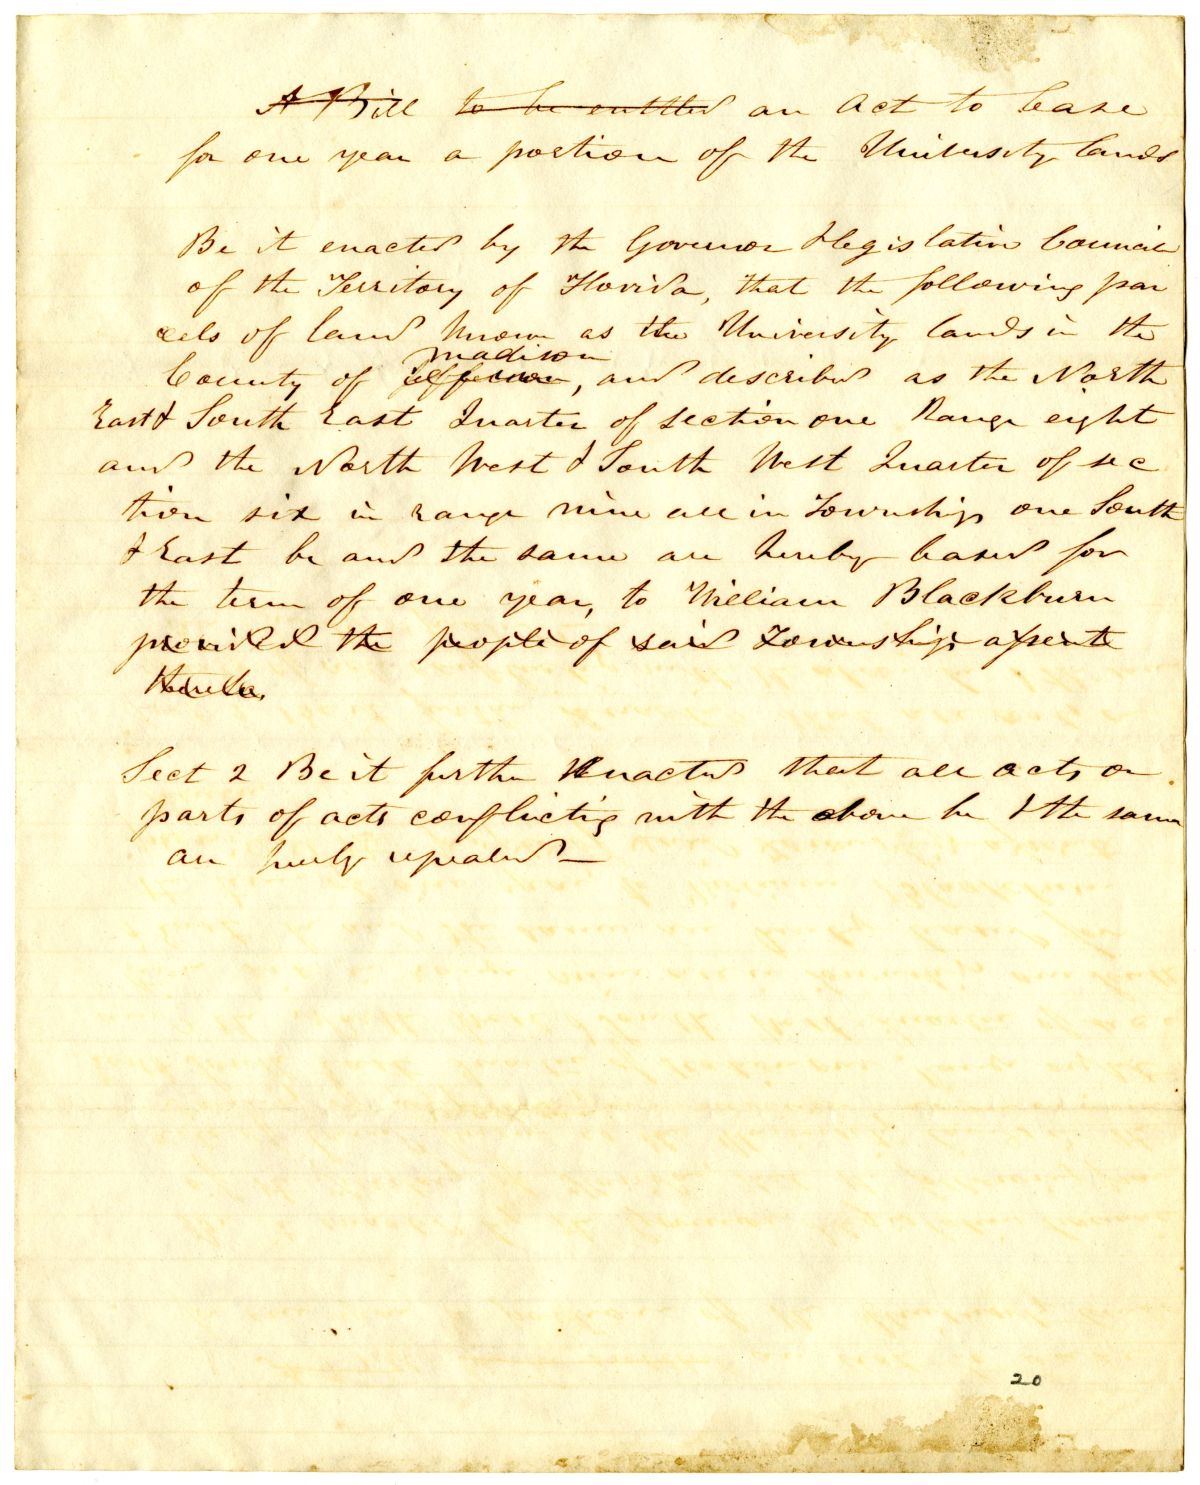 A Bill to be entitled an Act to lease
for one year a portion of the University lands
Be it enacted by the Governor & legislative Council
of the Territory of Florida, that the following par
cels of land known as the University lands in the
madison
County of jefferson, and described as the North
East & South East Quarter of section one Range eight
and the North West & South West Quarter of sec
tion six in range nine all in Township one South
& East be and the same are hereby leased for
the term of one year, to William Blackburn
provided the people of said Township assent
thereto.
Sect 2 Be it further Enacted that all acts or
parts of acts conflicting with the above be & the same
are hereby repealed—
20